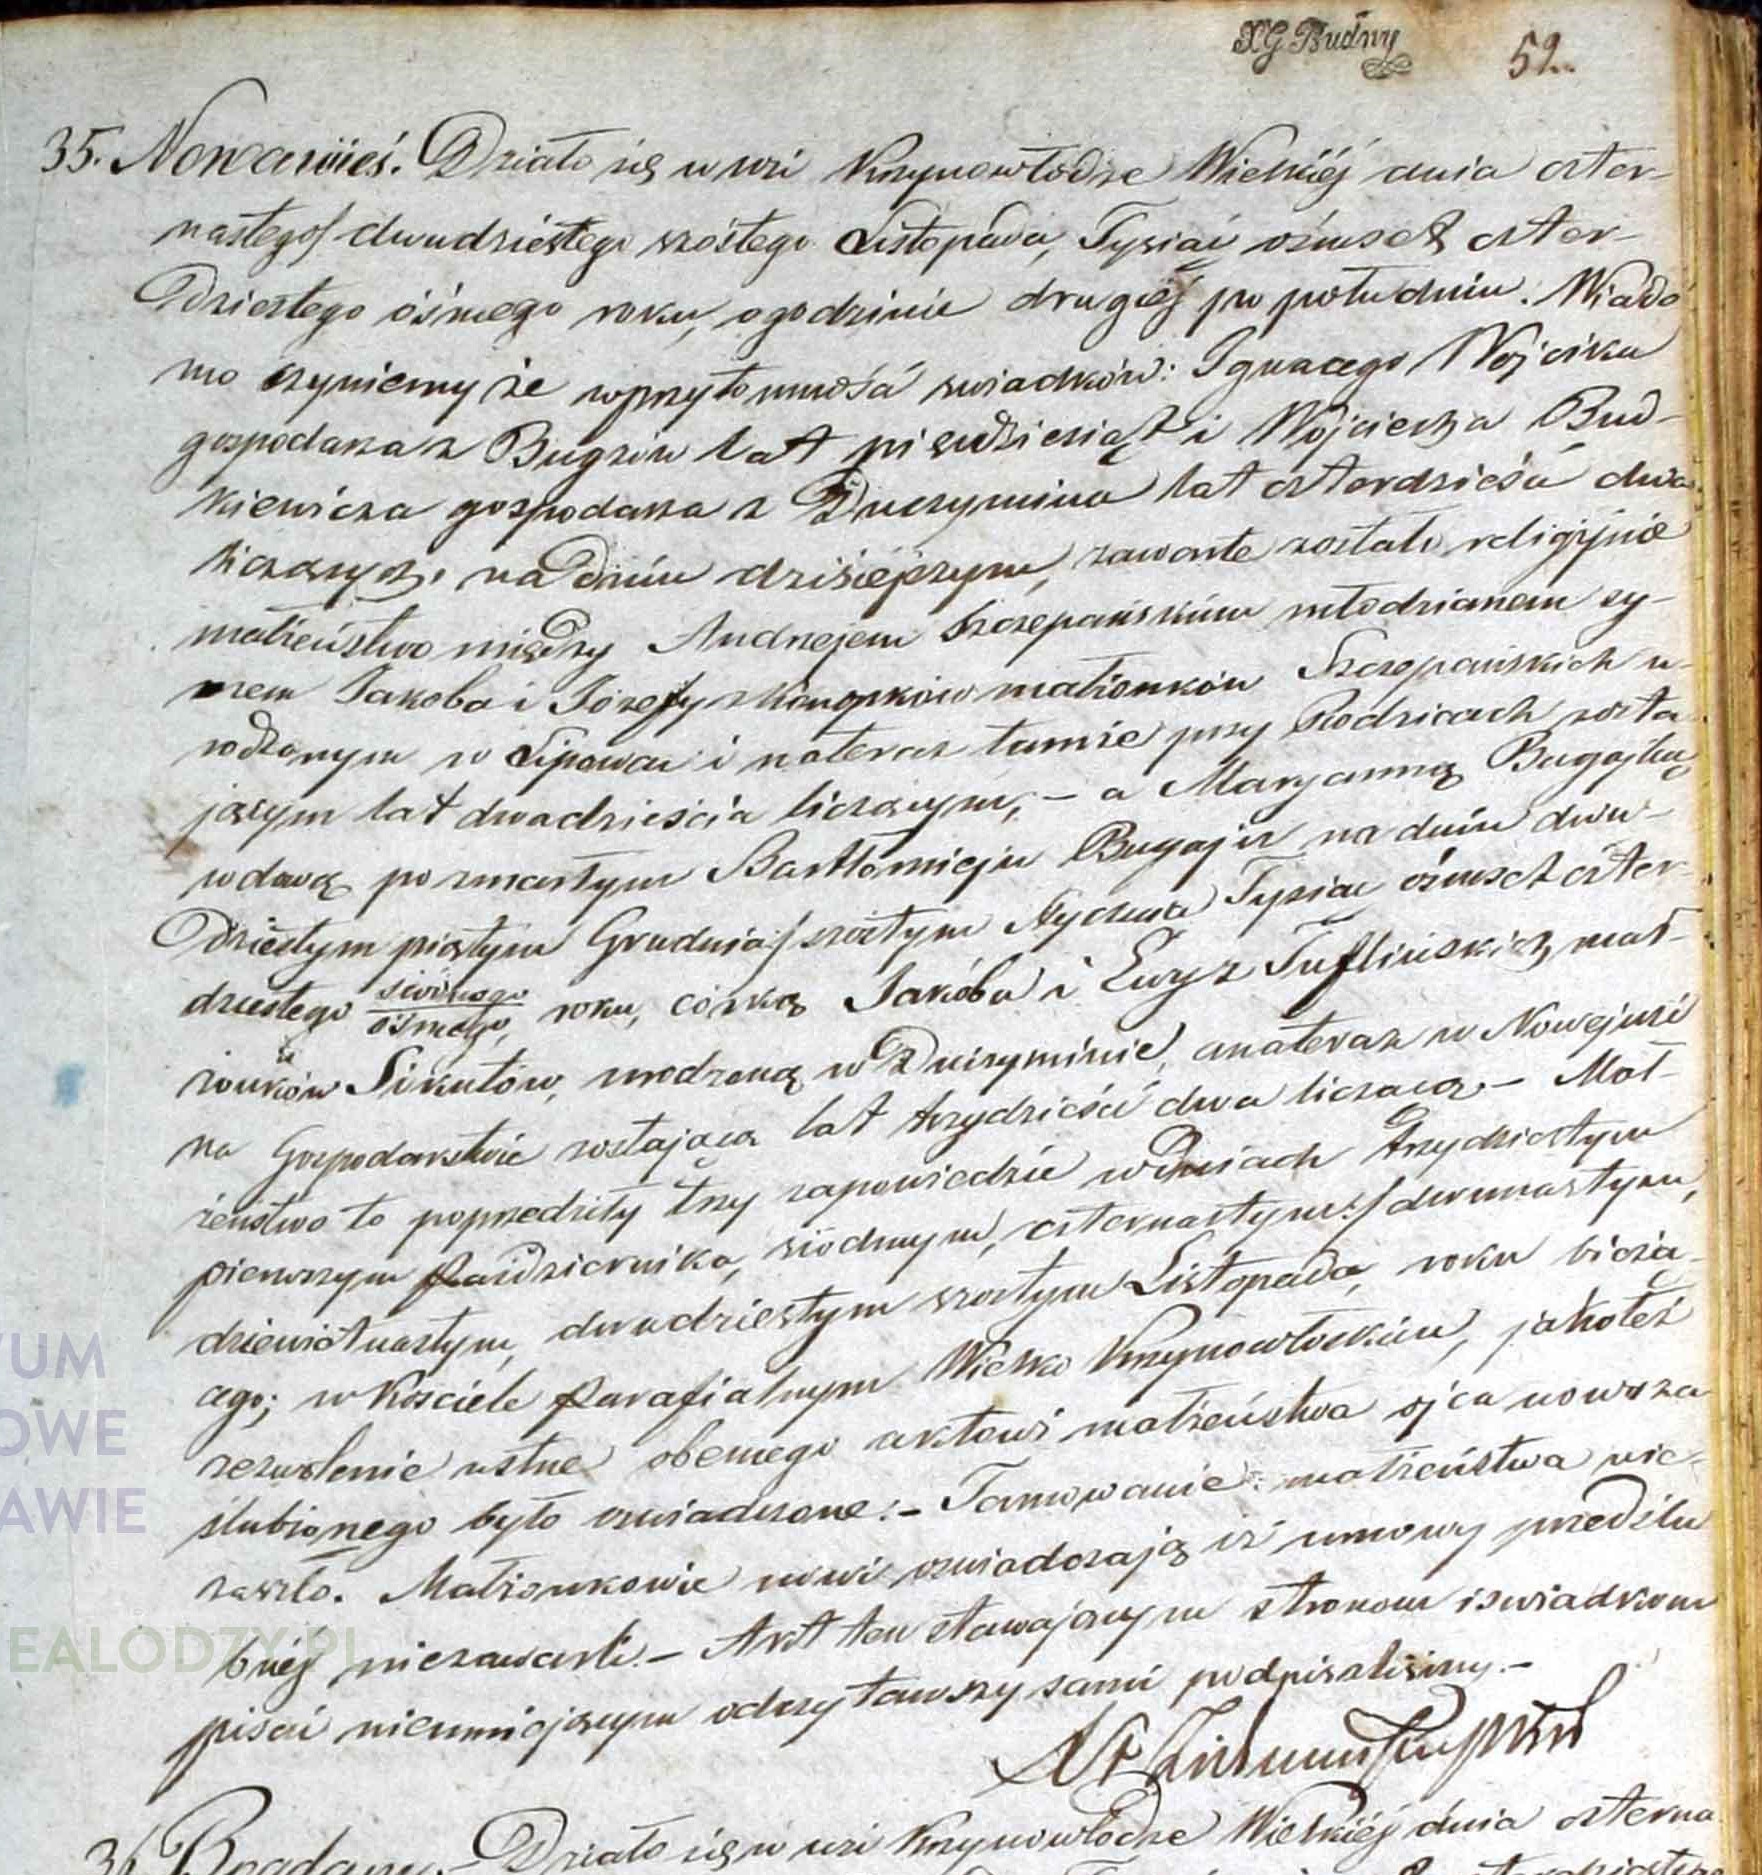 XG Budny 52.
35. Nowawieś. Działo się w wsi Krzynowłodze Wielkiéj dnia czter-
nastego/ dwudziestego szóstego Listopada, Tysiąc óśmset czter-
dziestego ósmego roku, o godzinie drugiéj po południu. Wiado
mo czyniemy że w przytomność swiadków: Ignacego Wojcika
gospodarza z Bugzin lat pięćdziesiąt i Wojciecha Bud-
kiewicza gospodarza z Duczymina lat czterdzieści dwa
liczących, na dniu dzisiéjszym, zawarte zostało religijnie
małżeństwo między Andrzejem Szczepańskim młodzianem sy-
nem Jakoba i Józefy z Konopków małżonków Szczepańskich u-
rodzonym w Lipowcu i na teraz tamże przy Rodzicach zosta
jącym lat dwadzieścia liczącym, – a Maryanną Bugajką
wdową po zmarłym Bartłomieju Bugaju na dniu dwu-
dziestym piątym Grudnia/ szóstym Stycznia Tysiąc óśmset czter-
dziestego siódmego
ósmego, roku, córką Jakóba i Ewy z Tuflińskich mał-
żonków Sikutów, urodzoną w Duczyminie, a na teraz w Nowejwsi
na Gospodarstwie zostającą lat trzydzieści dwa liczącą – Mał-
żeństwo to poprzedziły trzy zapowiedzie w dniach trzydziestym
pierwszym Października, siódmym, czternastym:/ dwunastym,
dziewiętnastym, dwudziestym szóstym Listopada, roku bieżą-
cego; w Kościele Parafialnym Wielko Krzynowłoskim, jakoteż
zezwolenie ustne obecnego aktowi małżeństwa ojca nowoza
ślubionego było oswiadczone: – Tamowanie małżeństwa nie-
zaszło. Małżonkowie nowi oswiadczają iż umowy przedślu
bnéj niezawarli. – Akt ten stawającym stronom i swiadkom
pisać nieumiejącym odczytawszy sami podpisaliśmy. –
Działo się w wsi Krzynowłodze Wielkiéj dnia czterna